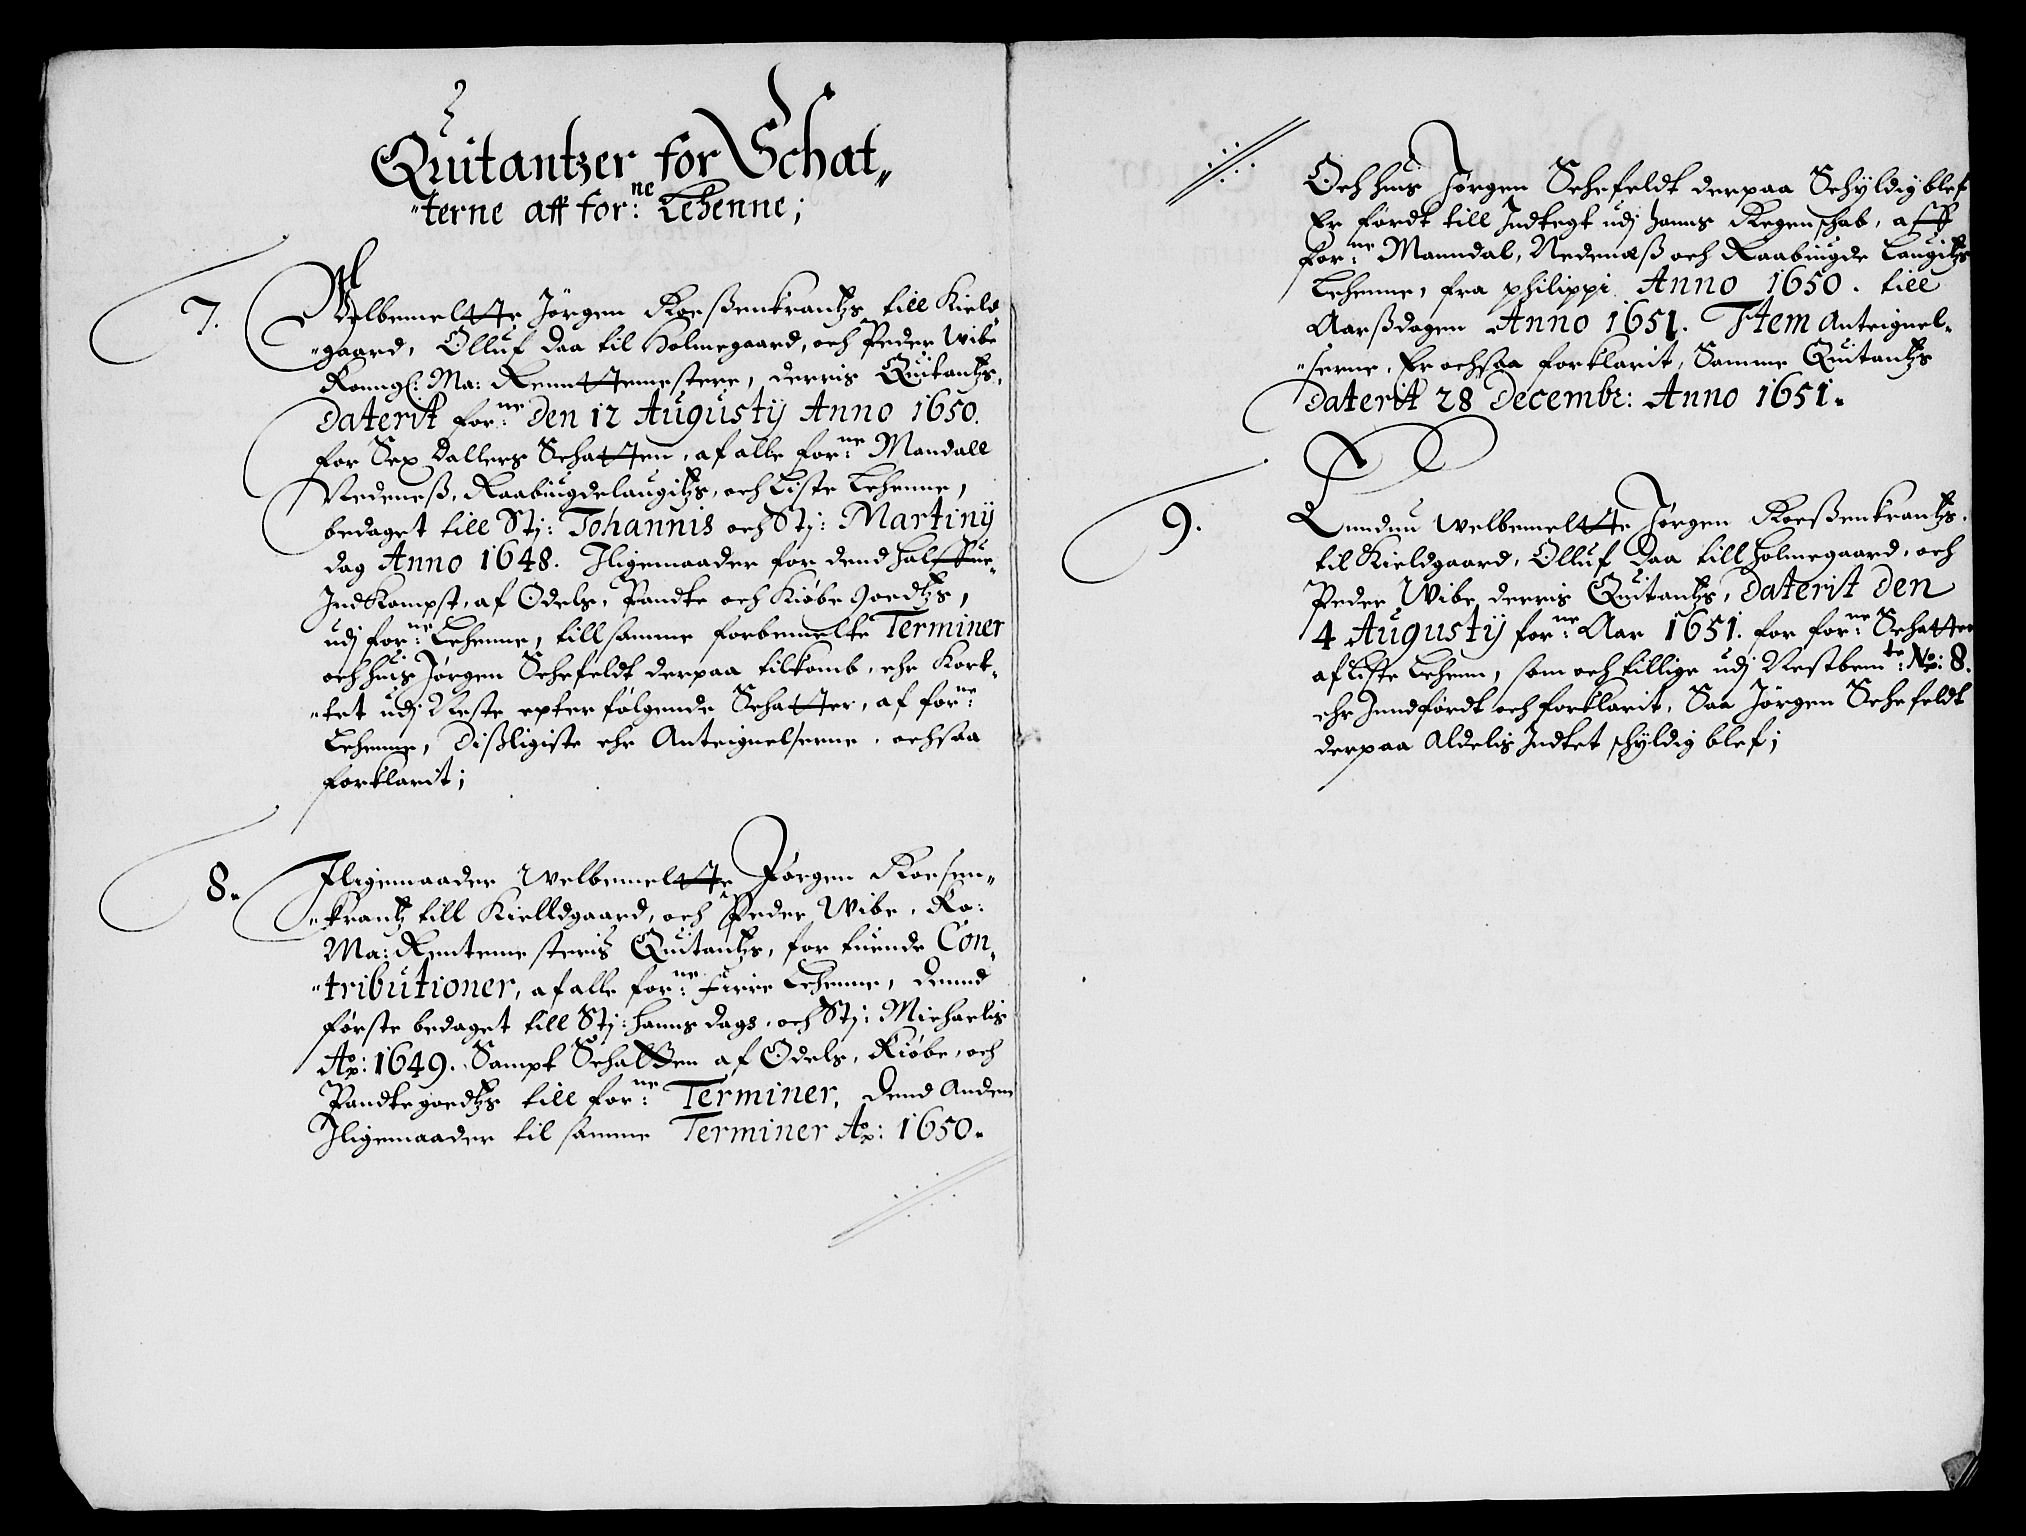 Quitantzer for Schat„
„terne aff for:ne Lehenne;
7.
Welbemeltte Jørgen Roeßenkrantz till Kiels
„gaard, Olluf Daa til Holmegaard, och Peder Wibe
Konngl: Ma: Renntemestere, derris Quitantz,
Daterit for:ne den 12 Augustij Anno 1650.
for Sex Dallers Schatten, af alle for:ne Mandall
Nedeneß, Raabiugdelaugitz, och Liste Lehenne,
bedaget till Stj: Johannis och Stj: Martinij
dag Anno 1648. Jligemaader for dend halffue„
Jndkompst, af Odels, Pandte och Kiøbe Goedtz,
udj for:ne Lehenne, till samme forbemelte Terminer
och huis Jørgen Schefeldt derpaa tilkomb, ehr Kort„
„tet udj Neste epterfølgende Schatter, af for:ne
Lehenne, Dißligiste ehr Anteignelserne, ochsaa
forklarit;
8.
Jligemaader Welbemeltte Jørgen Rosen„
„krantz till Kielldgaard, och Peder Wibe, Ko:
Ma: Rentemesteris Quitantz, for tuende Con„
„tributioner, af alle for:ne Fiire Lehenne, Dennd
første bedaget till Stj: Hanns dags, och Stj: Michaelis
Ao: 1649. Sampt Schatten af Odels, Kiøbe, och
Pandtegoedtz till for:ne Terminer, Dend Anden
Jligemaader til samme Terminer Ao: 1650.
Och huis Jørgen Schefeldt derpaa Schyldig blef
Er ført till Jndtegt udj hanns Regenschab, aff
for:ne Manndal, Nedenæß och Raabiugde Laugitz
Lehenne, fra philippi Anno 1650. till
Aarßdagen Anno 1651. Item Anteignel„
„serne, Er ochsaa forklarit, Samme Quitantz
Daterit 28 Decembr: Anno 1651.
9.
Enndnu Welbemeltte Jørgen Roeßenkrantz
til Kieldgaard, Olluf Daa till Holmegaard, och
Peder Wibe derris Quitantz, Daterit Den
4 Augustij for:ne Aar 1651. for for:ne Schatter
af Liste Lehenn, som och tillige udj Nestbem:te No: 8.
ehr Jnndført och forklarit, Saa Jørgen Schefeldt
derpaa Aldelis Jndtet schyldig blef;